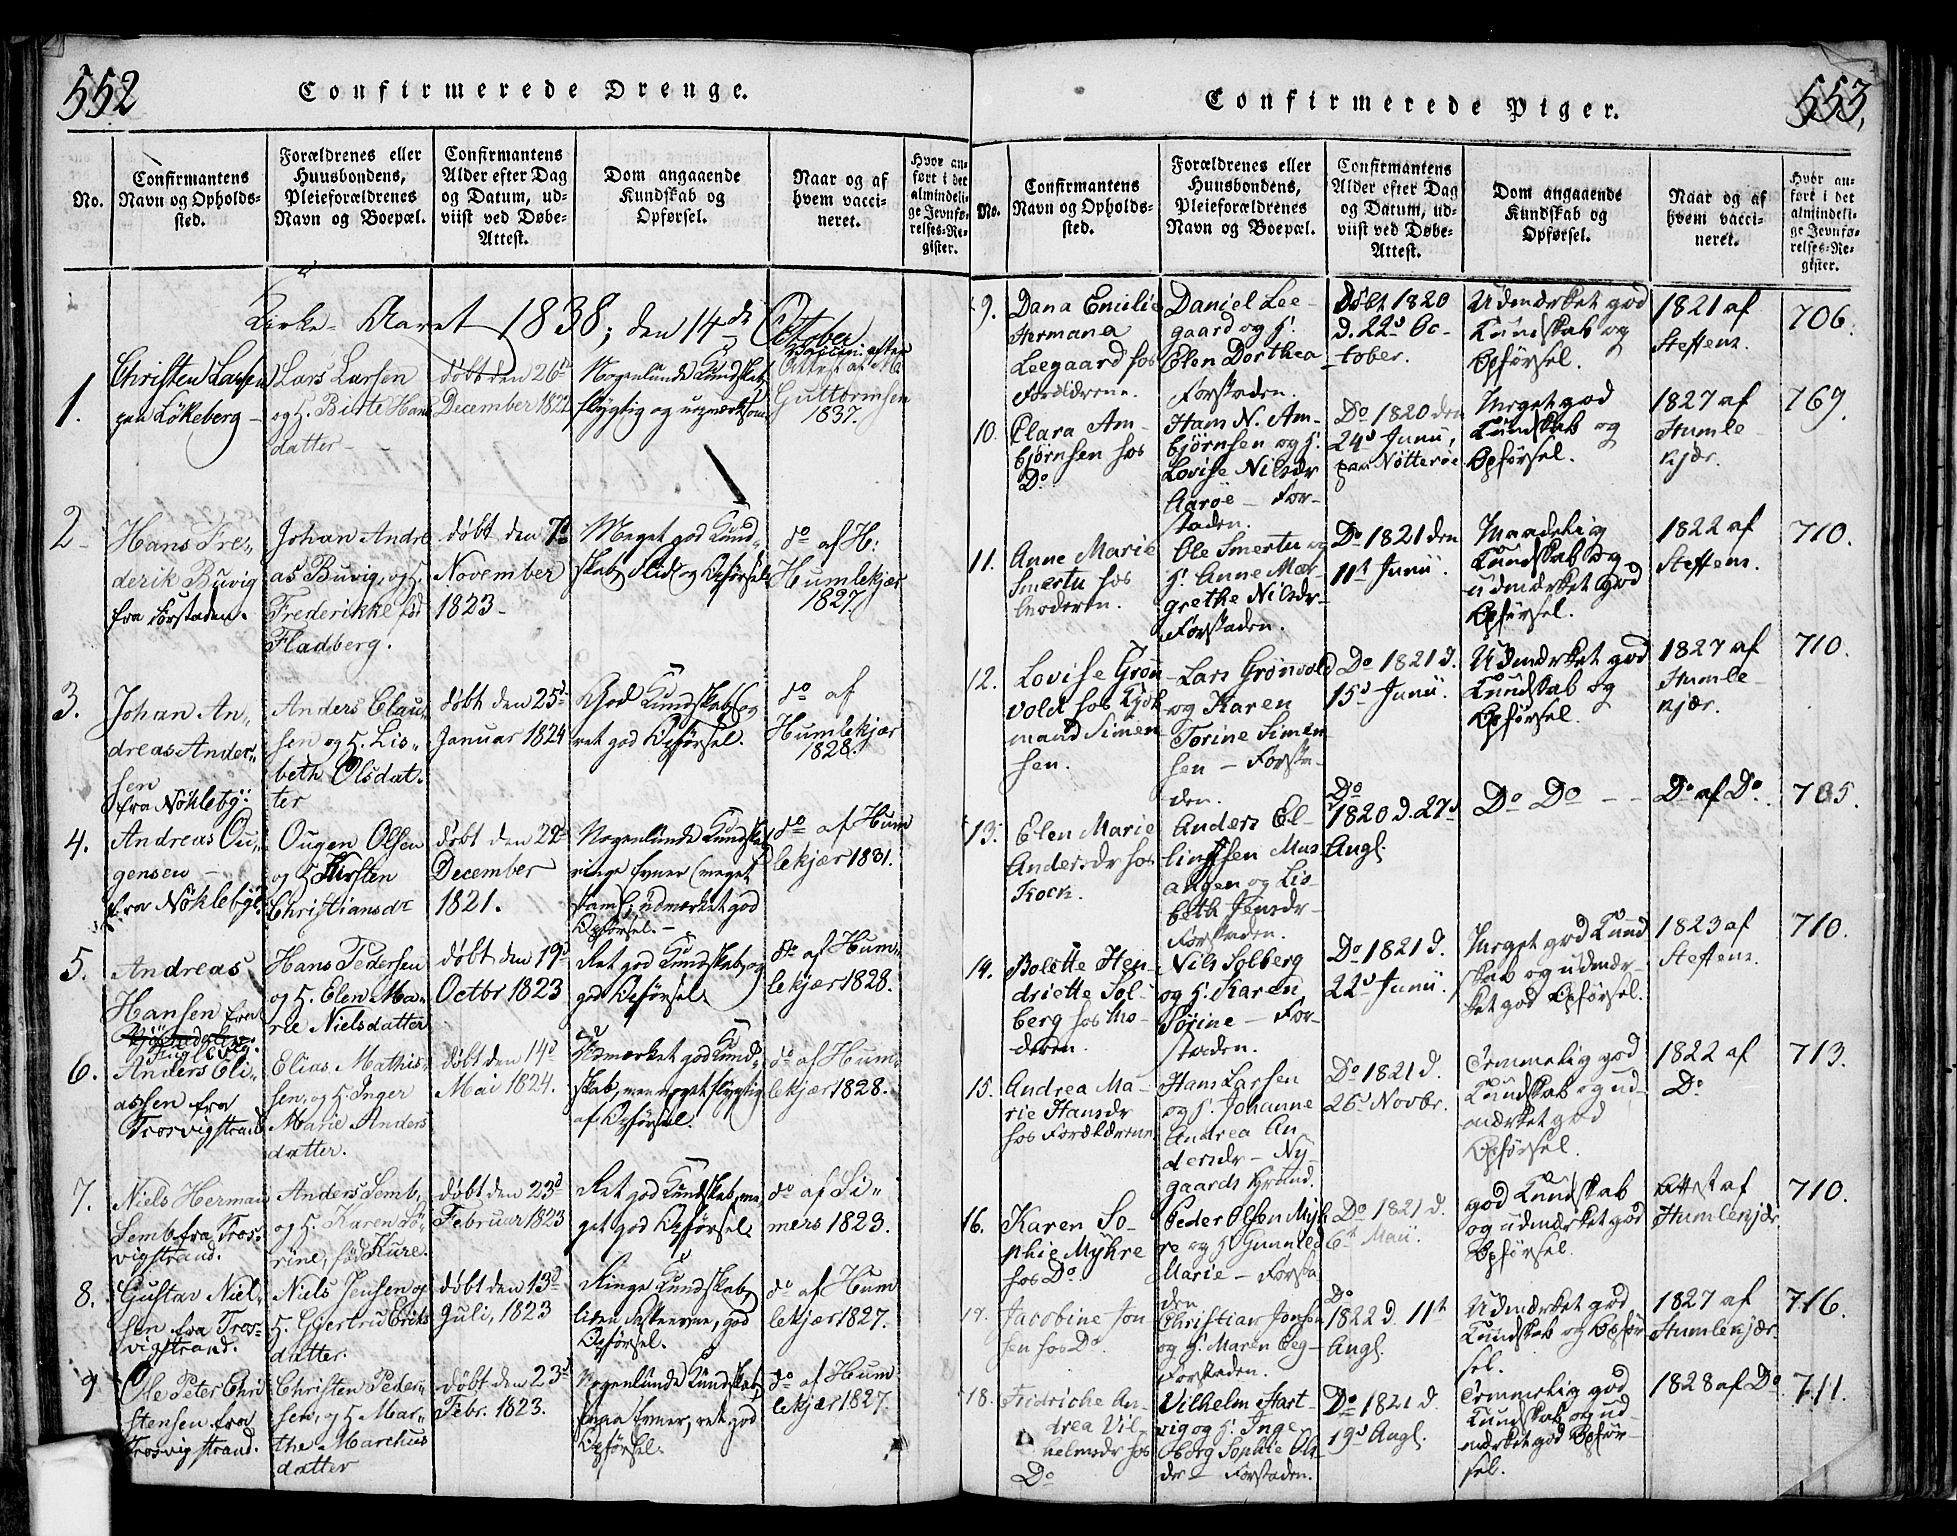 552
Confirmerede Drenge.
No.
Confirmantens
Navn og Opholds-
sted.
Forældrenes eller
Huusbondens,
Pleieforældrenes
Navn og Boepæl.
Confirmantens
Alder efter Dag
og Datum, ud-
viist ved Døbe-
Attest.
Dom angaaende
Kundskab og
Opførsel.
Naar og af
hvem vacci-
neret.
Hvor an-
ført i det
almindeli-
ge Jevnfø-
relses-Re-
gister.
Kirke-Aaret 1838, den 14de October
1.
Christen Larsen
Løkeberg
Lars Larsen
og H. Birte Hans
datter
døbt den 26d
December 1822
Nogenlunde Kundskab
flygtig og
Vaccin: efter
Attest af
Guttormsen
1837.
2
Hans Fre-
derik Buvig
fra Forstaden.
Johan Andre
as Buvig, og H.
Frederikke fød
Fladberg.
døbt den 7d
November
1823
Meget god Kund-
skab, Flid og Opførsel
do af H:
Humlekjær
1827
3.
Johan An-
dreas Ander-
sen
fra Nøkleby.
Anders Clau-
sen og H. Lis-
beth Olsdat-
ter
døbt den 25d
Januar 1824
God Kundskab, og
ret god Opførsel.
do af
Humlekjær
1828.
4.
Andreas Ou-
gensen
fra Nøklebye
Ougen Olsen
og H Kirsten
Christiansdr
døbt den 22d
December
1821.
Nogenlunde Kundskab
ringe Evner (meget
udmærket god
Opførsel.
do af Hum
lekjær 1831.
5.
Andreas
Hansen fra
Hans Pedersen
og H. Elen Ma-
rie Nielsdatter
døbt den 19d
Octbr 1823
Ret god Kundskab, og
god Opførsel.
do af Hum-
lekjær 1828.
6.
Anders Eli-
assen fra
Trosvigstrand
Elias Mathis-
sen, og H. Inger
Marie Anders
datter.
døbt den 14d
Mai 1824.
Udmærket god Kund-
skab, men noget flygtig
af Opførsel.
do af Hum-
lekjær 1828.
7.
Niels Herman
Semb fra Tros-
vigstrand.
Anders Semb,
og H. Karen Sø-
rine, fød Kure.
døbt den 23d
Februar 1823
Ret god Kundskab, me-
get god Opførsel
do af Si-
mers 1823.
8.
Gustav Niel-
sen fra Tros-
vigstrand.
Niels Jensen og
H. Gjertru Eriks
datter.
døbt den 13d
Juli, 1823
Ringe Kundskab,
liden Fatteevne, god
Opførsel.
do af Hum
lekjær 1827.
9
Ole Peter Chri
stensen fra
Trosvigstrand.
Christen Peder-
sen, og H Mar-
the Marchus
datter
døbt den 23d
Febr. 1823.
Nogenlunde Kundskab,
smaa Evner, ret god
Opførsel.
do af Hum
lekjær 1827.
553.
Confirmerede Piger.
No.
Confirmantens
Navn og Opholds-
sted.
Forældrenes eller
Huusbondens,
Pleieforældrenes
Navn og Boepæl.
Confirmantens
Alder efter Dag
og Datum, ud-
viist ved Døbe-
Attest.
Dom angaaende
Kundskab og
Opførsel.
Naar og af
hvem vacci-
neret.
Hvor an-
ført i det
almindeli-
ge Jevnfø-
relses-Re-
gister.
9.
Dana Emilie
Hermana
Leegaard hos
Forældrene.
Daniel Lee-
gaard og H.
Elen Dorthea
Forstaden.
Døbt 1820
d. 22d Oc-
tober.
Udmærket god
Kundskab og
Opførsel.
1821 af
Steffens.
706.
10.
Clara Am-
bjørnsen hos
Do
Hans N. Am-
bjørnsen og H.
Lovise Nilsdr
Aarøe - For-
staden.
Do 1820 den
24d Junii,
paa Nøtterøe
Meget god
Kundskab og
Opførsel.
1827 af
Humle-
kjær.
769.
11.
Anne Marie
Smertu hos
Moderen.
Ole Smertu og
H. Anne Mar-
grethe Nilsdr-
Forstaden.
Do 1821 den
11t Junii.
Maadelig
Kundskab og
udmærket god
Opførsel.
1822 af
Steffens.
710.
12.
Lovise Grøn
vold hos Kjøb
mand Simen-
sen.
Lars Grønvold
og Karen
Torine Simen
sen - Forsta-
den.
Do 1821 d.
15d Junii.
Udmærket god
Kundskab og
Opførsel.
1827 af
Humle-
kjær.
710.
13.
Elen Marie
Andersdr hos
Kock.
Anders El-
lingsen Mus
angen og Lis-
beth Jensdr-
Forstaden.
Do
1820 d. 27d
Augl.
Do Do - -
Do af Do.
705.
14.
Bolette Hen-
driette Sol-
berg hos Mo-
deren.
Nils Solberg
og H. Karen
Sørine - For-
staden.
Do 1821 d.
22d Junii.
Meget god Kund
skab og udmær-
ket god Opførsel.
1823 af
Steffens.
710.
15.
Andrea Ma-
rie Hansdr
hos Forældrene
Hans Larsen
og H. Johanne
Andrea An-
dersdr - Ny-
gaards Grund.
Do 1821 d.
26d Novbr.
Temmelig god
Kundskab og ud-
mærket god
Opførsel.
1822 af
Do
713.
16.
Karen So-
phie Myhre
hos Do
Peder Olsen Myh
re og H Gunnild
Marie - Forsta
den
Do 1821 d.
6t Maii.
god Kundskab
og udmærket god
Opførsel.
Attest af
Humlekjær.
710.
17.
Jacobine Jon
sen hos Do.
Christian Jonsen
og H. Maren Beg-
Forstaden.
Do
1822 d. 11t
Augl.
Udmærket god
Kundskab og Opfør
sel.
1827 af
Humlekjær.
716.
18.
Fridriche An-
drea Vil-
helmsdr hos
Do
Vilhelm Hart-
vig og H. Inge
borg Sophie Ols
dr - Forstaden.
Do 1821 d.
19d Augl.
Temmelig god
Kundskab og ud-
mærket god Opfør-
sel.
1828 af Do
711.